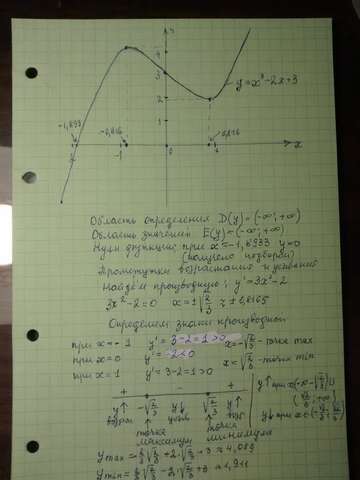 y
4
3
2
y=x³-2x+3
-1,893
-0,816
0,816
-2
-1
0
1
x
Область определения D(y)=(-∞;+∞)
Область значений E(y)=(-∞;+∞)
Нули функции: при x≈-1,8933 y=0
(получено подбором)
Промежутки возрастания и убывания
Найдем производную: y'=3x²-2
3x²-2=0 x=±√2/3 ≈±0,8165
Определим знаки производной
при x=-1 y'=3-2=1>0 x=-√2/3 -точка max
при x=0 y'=-2<0 x=√2/3 -точка min
при x=1 y'=3-2=1>0
+ - +
y↑ -√2/3 y↓ √2/3 y↑
возраст убыв
точка точка
максимума минимума
y↑ при x∈(-∞;-√2/3)∪
(√2/3;+∞)
y↓ при x∈(-√2/3;√2/3)
ymax = +2·√2/3+3≈4,089
ymin = -2·√2/3+3≈1,911